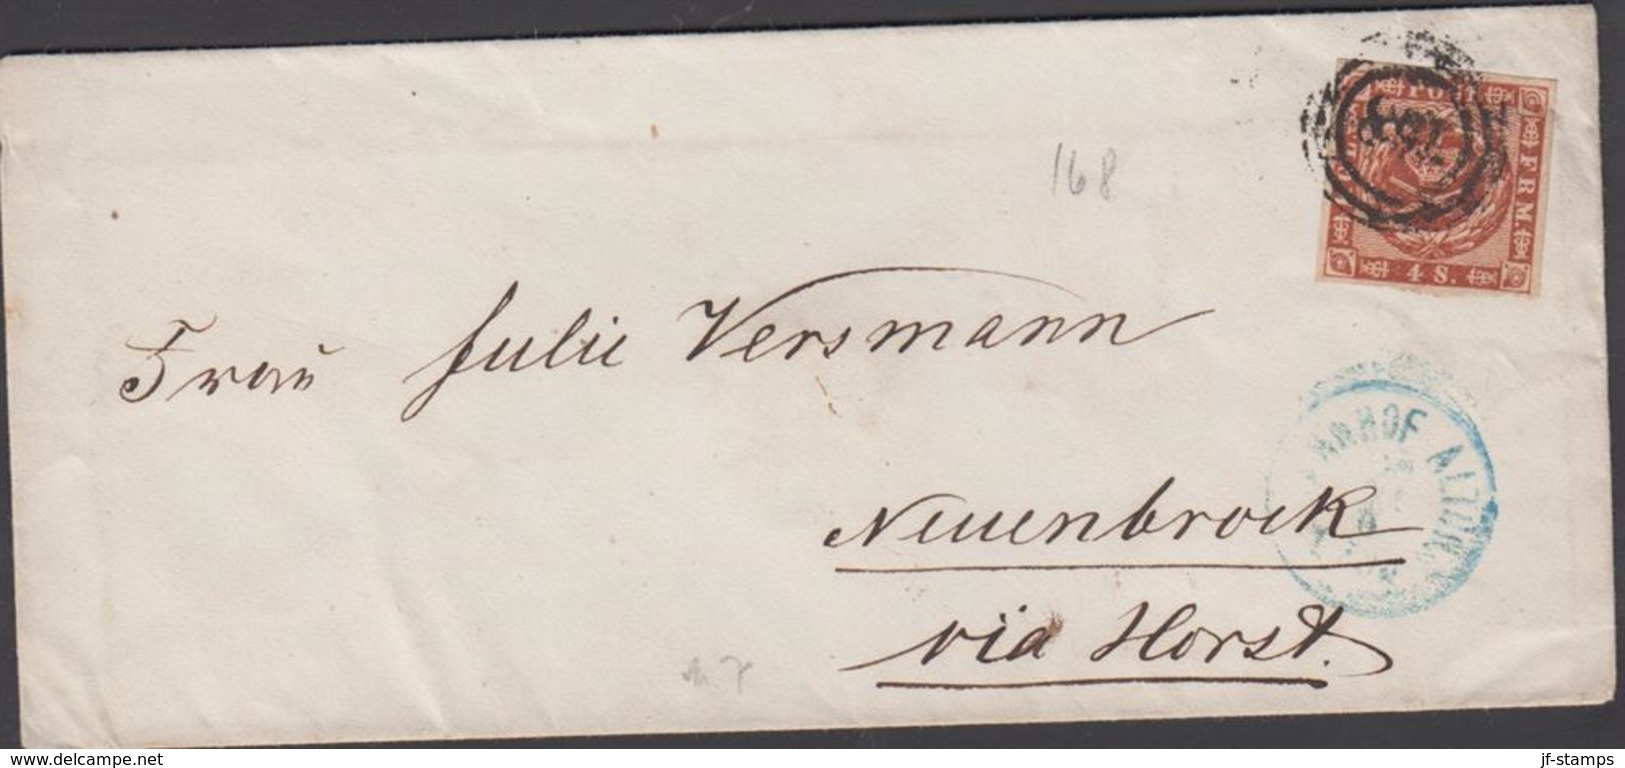 168
POST
FRM
4 S.
Frau Julie Versmann
BAHNHOF ALTONA
Neuenbrook
via Horst.
www.delcampe.net
jf-stamps